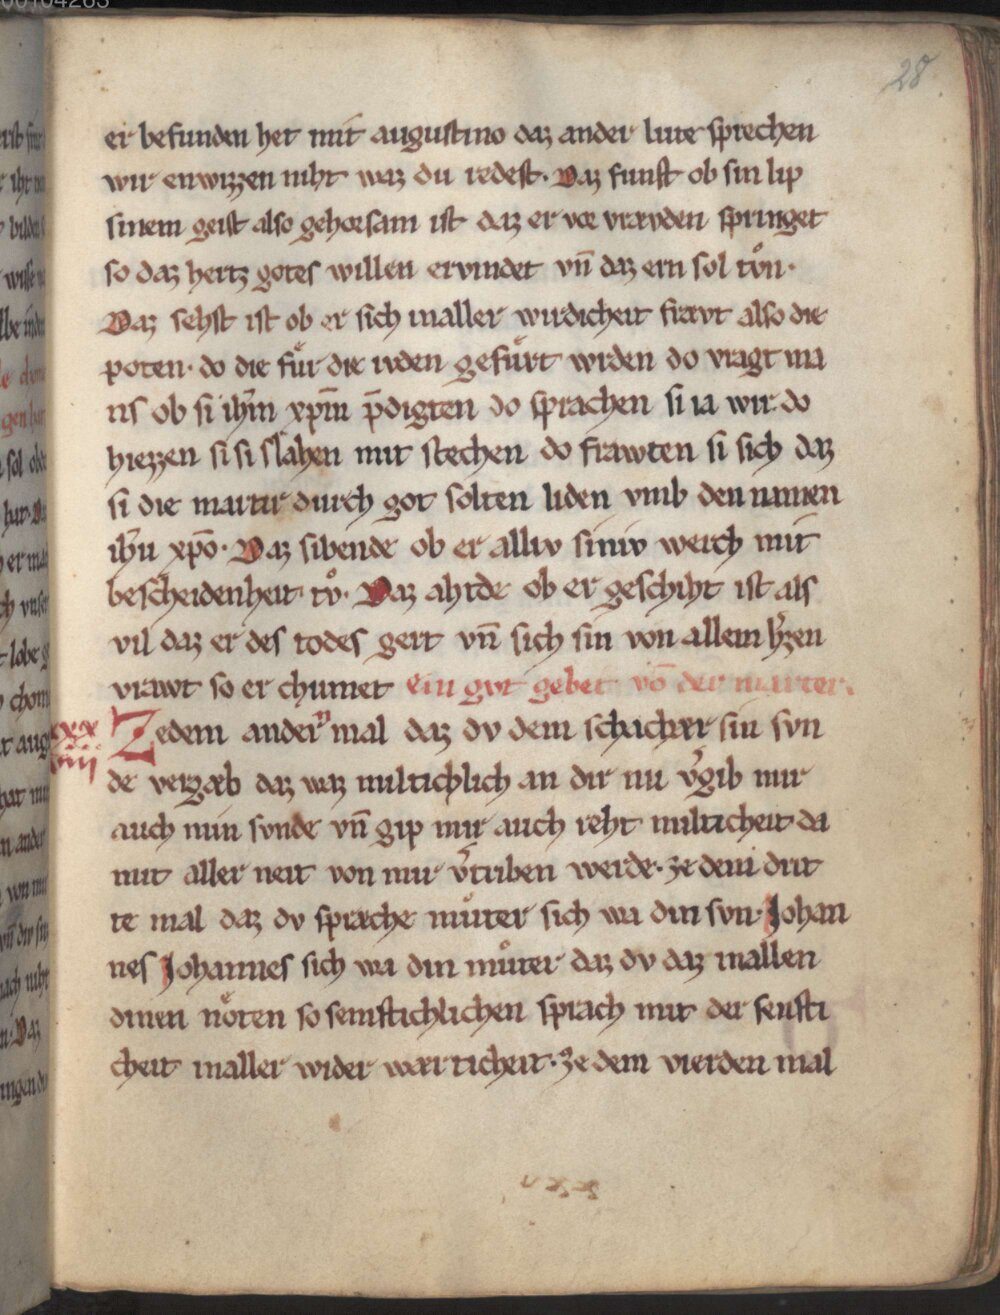 28
er befunden het mit augustino daz ander liute sprechen
wir enwizzen niht waz du redest. Daz funft ob sin lip
sinem geist also gehorsam ist daz er vor vravden springet
so daz hertz gotes willen ervindet vn̄ daz ern sol tvͦn.
Daz sehst ist ob er sich inaller wirdicheit fravt also die
poten. do die fuͤr die ivden gefuͤrt wrden do vragt ma
ns ob si ihm̄ xpm̄ p̄digten do sprachen si ia wir. do
hiezzen si si slahen mit stechen do frawten si sich daz
si die martir durch got solten liden vmb den namen
ihū xpō. Daz sibende ob er alliv siniv werch mit
bescheidenheit tvͦ. Daz ahtde ob er geschiht ist als
vil daz er des todes gert vn̄ sich sin von allem h̓zen
vrawt so er chumet ein gvt gebet vō der marter.
xx
iiii
Zedem andern mal daz dv dem schacher sin svn
de vergæb daz waz miltichlich an dir nu v̓gib mir
auch min svnde vn̄ gip mir auch reht milticheit da
mit aller neit von mir v̓triben werde. ze dem drit
te mal daz dv spræche muͦter sich wa din svn. Johan
nes Johannes sich wa din muͦter daz dv daz inallen
dinen noͤten so semftichlichen sprach mit der senfti
cheit inaller wider wærticheit. Ze dem vierden mal